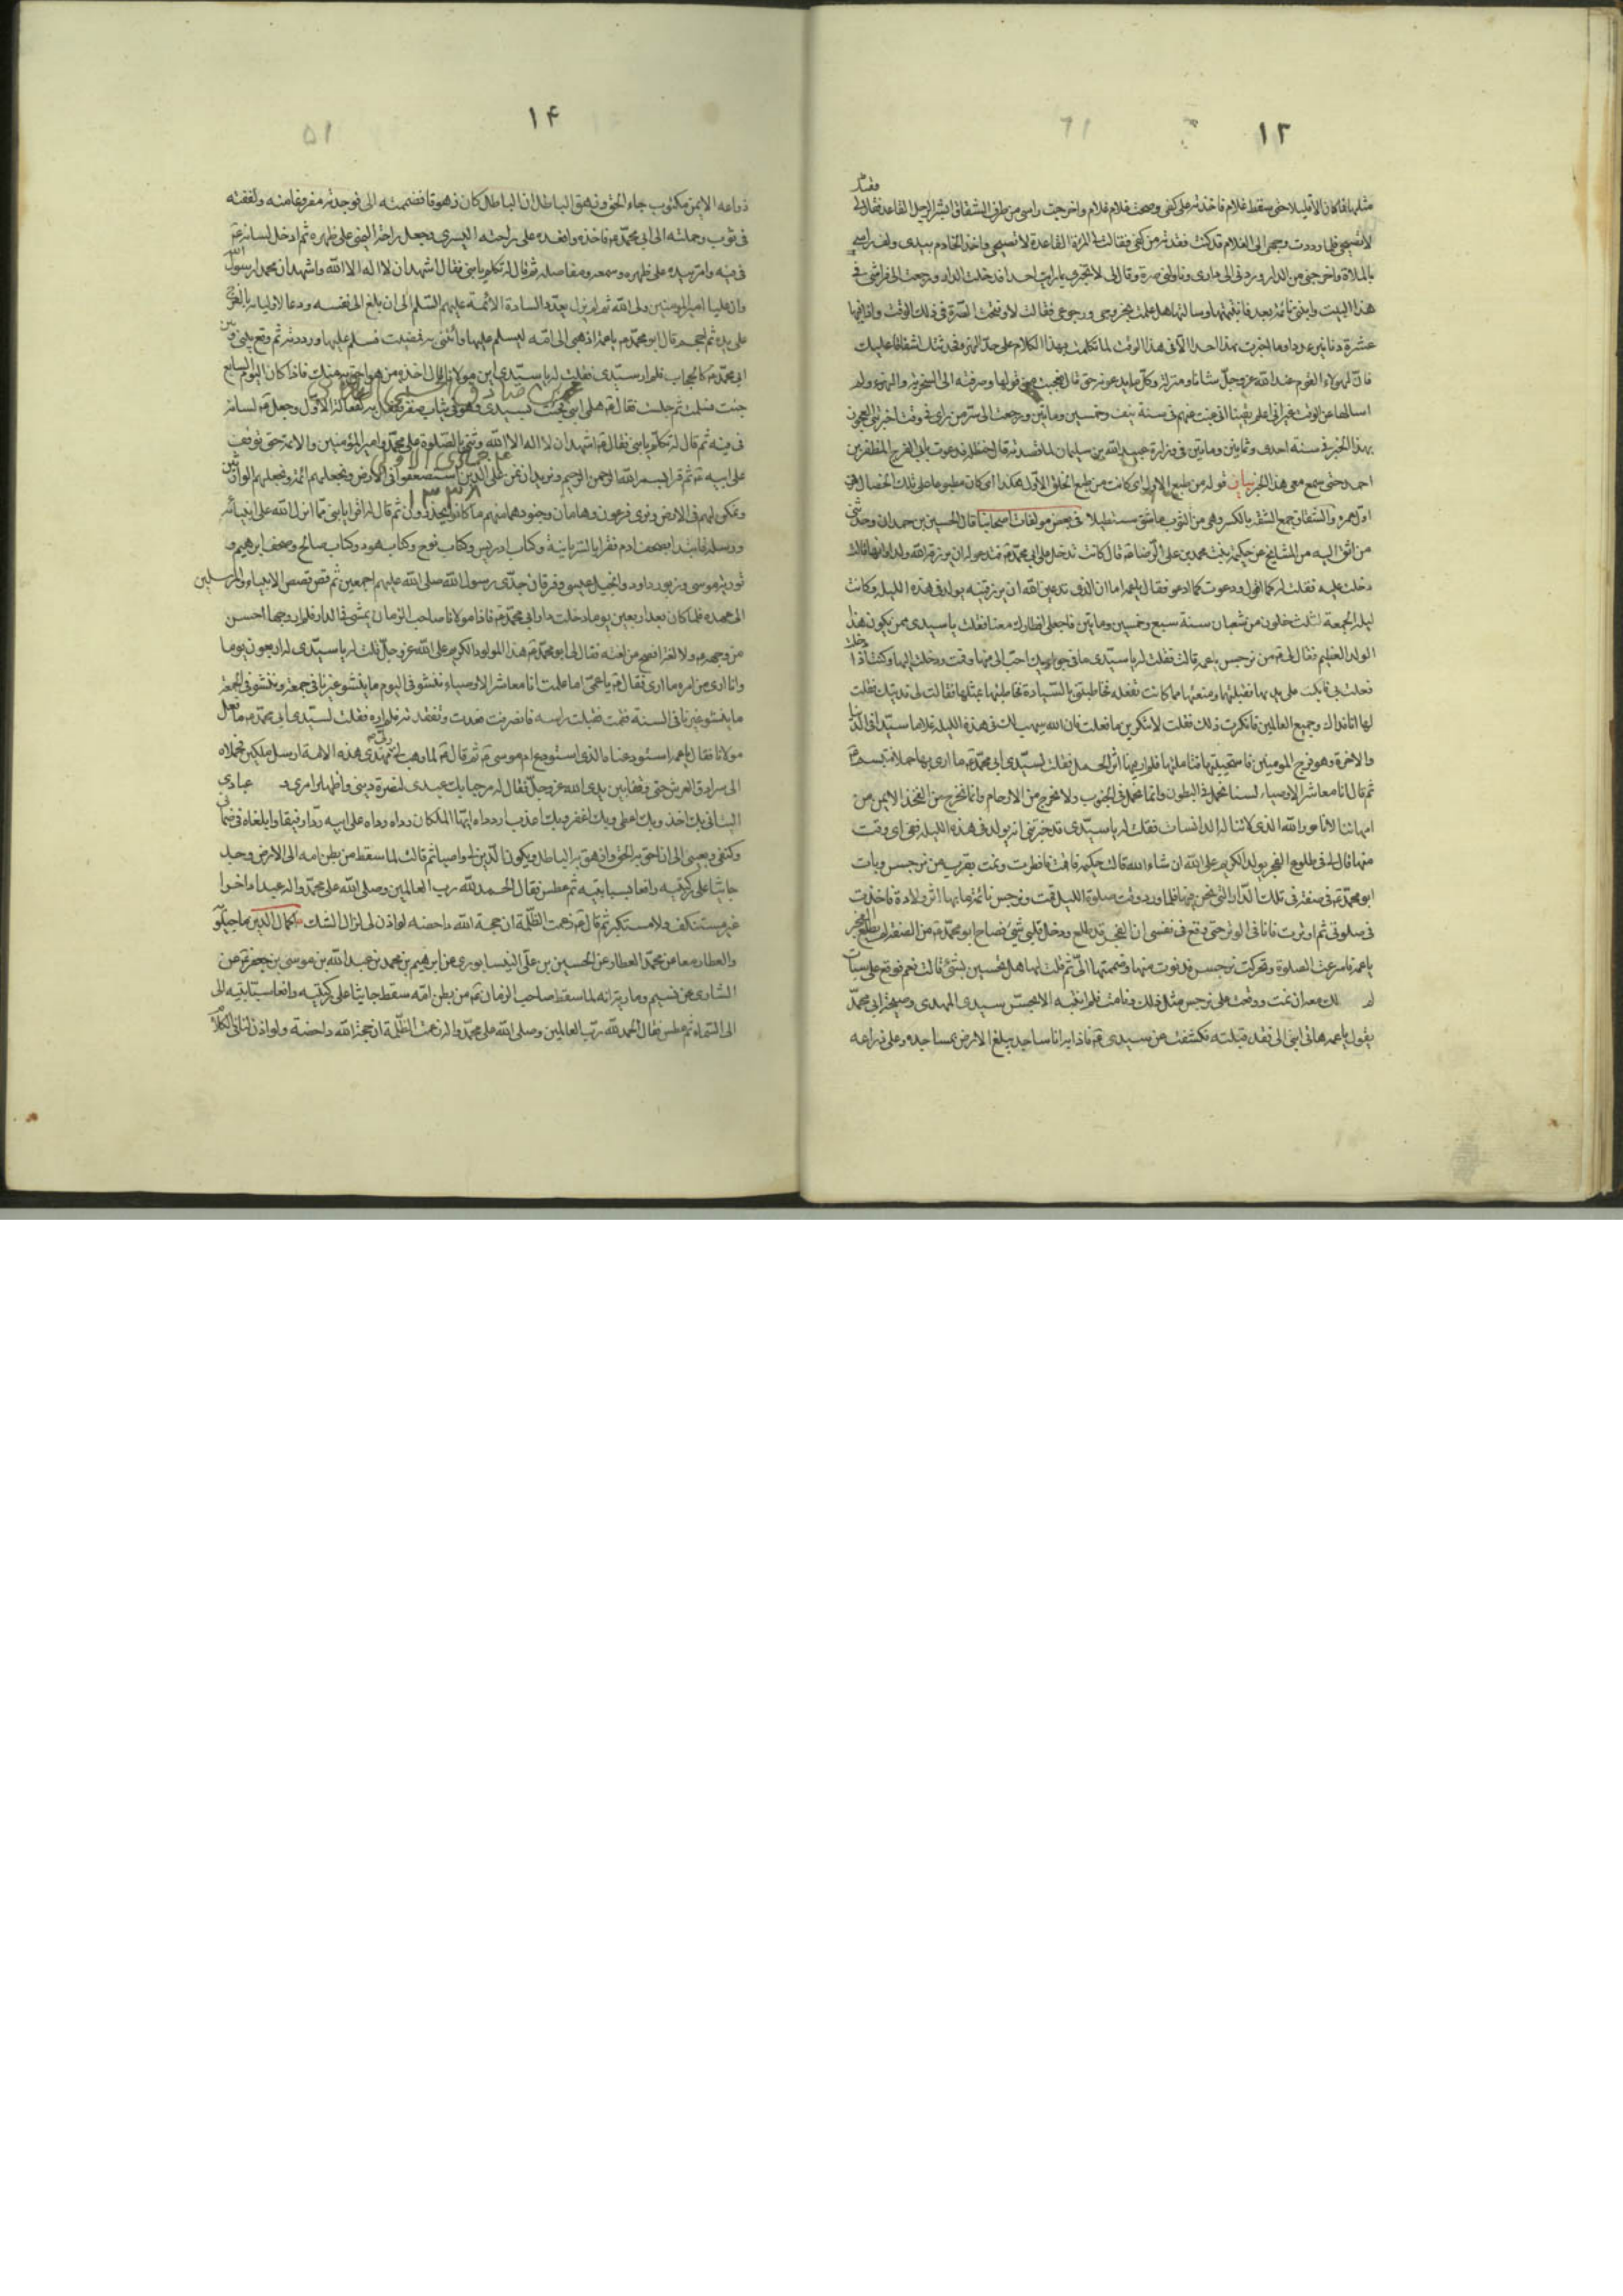 ١٣
مثلها فما كان الا قليلا حتى سقط غلام فاخذته على كفى وصحت غلام غلام واخرجت راسى من طرف الشقاق ابشر الرجل القاعد فقيل لى
لا تصيحى فلما رددت وجهى الى الغلام قد كنت فقدته من كفى فقالت لى المرأة القاعدة لا تصيحى واخذ الخادم بيدى ولف راسى
بالملاءة واخرجنى من الدار وردنى الى دارى وناولنى صرة وقال لى لا تخبرى بما رايت احدا فدخلت الدار ورجعت الى فراشى فى
هذا البيت وابنتى نائمة بعد فانبهتها وسالتها هل علمت بخروجى ورجوعى فقالت لا وفتحت الصرة فى ذلك الوقت واذا فيها
عشرة دنانير عددا وما اخبرت بهذا احدا الا فى هذا الوقت لما تكلمت بهذا الكلام على حد الهزء فحدثتك اشفاقا عليك
فان لهؤلاء القوم عند الله عز وجل شانا ومنزلة وكل ما يدعونه حق قال فعجبت من قولها وصرفته الى السخرية والهزء ولم
اسالها عن الوقت غير انى اعلم يقينا انى غبت عنهم فى سنة نيف وخمسين وماتين ورجعت الى سر من راى فى وقت اخبرتنى العجوز
بهذا الخبر فى سنة احدى وثمانين وماتين فى وزارة عبيد الله بن سليمان لما قصدته قال حنظلة فدعوت بابى الفرج المظفر بن
احمد حتى سمع معى هذا الخبر بيان قوله من طبع الاول اى كانت من طبع الخلق الاول هكذا اى كان مطبوعا على تلك الخصال فى
اول عمره والشقاق جمع الشقة بالكسر وهى من الثوب ما شق مستطيلا فى بعض مولفات اصحابنا قال الحسين بن حمدان وحدثنى
من اثق اليه من المشايخ عن حكيمة بنت محمد بن على الرضا قال كانت تدخل على ابى محمد فتدعو له ان يرزقه الله ولدا وانها قالت
دخلت عليه فقلت له كما اقول ودعوت كما ادعو فقال يا عمة اما ان الذى تدعين الله ان يرزقنيه يولد فى هذه الليلة وكانت
ليلة الجمعة لثلث خلون من شعبان سنة سبع وخمسين وماتين فاجعلى افطارك معنا فقلت يا سيدى ممن يكون هذا
الولد العظيم فقال لى من نرجس يا عمة قالت فقلت له يا سيدى ما فى جواريك احب الى منها وقمت ودخلت اليها وكنت اذا دخلت
فعلت بى كما تفعل فانكببت على يديها فقبلتهما ومنعتها مما كانت تفعله فخاطبتنى بالسيادة فخاطبتها بمثلها فقالت لى فديتك فقلت
لها انا فداك وجميع العالمين فانكرت ذلك فقلت لا تنكرين ما فعلت فان الله سيهب لك فى هذه الليلة غلاما سيدا فى الدنيا
والاخرة وهو فرج المومنين فاستحييت فتاملتها فلم ار فيها اثر الحمل فقلت لسيدى ابى محمد ما ارى بها حملا فتبسم
ثم قال انا معاشر الاوصياء لسنا نحمل فى البطون وانما نحمل فى الجنوب ولا نخرج من الارحام وانما نخرج من الفخذ الايمن من
امهاتنا لاننا نور الله الذى لا تناله الدانسات فقلت له يا سيدى قد اخبرتنى انه يولد فى هذه الليلة ففى اى وقت
منها قال لى فى طلوع الفجر يولد الكريم على الله ان شاء الله قالت حكيمة فاقمت فافطرت ونمت بقرب من نرجس وبات
ابو محمد فى صفة فى تلك الدار التى نحن فيها فلما ورد وقت صلوة الليل قمت ونرجس نائمة ما بها اثر ولادة فاخذت
فى صلوتى ثم اوترت فانا فى الوتر حتى وقع فى نفسى ان الفجر قد طلع ودخل قلبى شىء فصاح ابو محمد من الصفة لم يطلع الفجر
يا عمة فاسرعت الصلوة وتحركت نرجس فدنوت منها وضممتها الى ثم قلت لها هل تحسين بشىء قالت نعم فوقع على سبات
لم اتمالك معه ان نمت ووقع على نرجس مثل ذلك ونامت فلم انتبه الا بحس سيدى المهدى وصيحة ابى محمد
يقول يا عمة هاتى ابنى الى فقد قبلته فكشفت عن سيدى فاذا به انا ساجد يبلغ الارض بمساجده وعلى ذراعه
١۴
ذراعه الايمن مكتوب جاء الحق وزهق الباطل ان الباطل كان زهوقا فضممته الى فوجدته مفروغا منه ولففته
فى ثوب وحملته الى ابى محمد فاخذه واقعده على راحته اليسرى وجعل راحته اليمنى على ظهره ثم ادخل لسانه
فى فيه وامر بيده على ظهره وسمعه ومفاصله ثم قال له تكلم يا بنى فقال اشهد ان لا اله الا الله واشهد ان محمدا رسول الله
وان عليا امير المومنين ولى الله ثم لم يزل يعدد السادة الائمة عليهم السلم الى ان بلغ الى نفسه ودعا لاوليائه بالفرج
على يده ثم احجم قال ابو محمد يا عمة اذهبى الى امه ليسلم عليها واتينى به فمضيت فسلم عليها ورددته ثم وقع بينى وبين
ابى محمد كالحجاب فلم ار سيدى فقلت له يا سيدى اين مولانا فقال اخذه من هو احق به منك فاذا كان اليوم السابع
جئت فسلمت ثم جلست فقال هلمى ابنى فجئت بسيدى وهو فى ثياب صفر ففعل به كفعاله الاول وجعل لسانه
فى فيه ثم قال له تكلم يا بنى فقال اشهد ان لا اله الا الله وثنى بالصلوة على محمد وامير المؤمنين والائمة حتى وقف
على ابيه ثم قرا بسم الله الرحمن الرحيم ونريد ان نمن على الذين استضعفوا فى الارض ونجعلهم ائمة ونجعلهم الوارثين
ونمكن لهم فى الارض ونرى فرعون وهامان وجنودهما منهم ما كانوا يحذرون ثم قال له اقرا يا بنى مما انزل الله على انبيائه
ورسله فابتدا بصحف ادم فقراها بالسريانية وكتاب ادريس وكتاب نوح وكتاب هود وكتاب صالح وصحف ابرهيم و
تورية موسى وزبور داود وانجيل عيسى وفرقان جدى رسول الله صلى الله عليهم اجمعين ثم قص قصص الانبياء والمرسلين
الى عهده فلما كان بعد اربعين يوما دخلت دار ابى محمد فاذا مولانا صاحب الزمان يمشى فى الدار فلم ار وجها احسن
من وجهه ولا لغة افصح من لغته فقال لى ابو محمد هذا المولود الكريم على الله عز وجل قلت له يا سيدى له اربعون يوما
وانا ارى من امره ما ارى فقال يا عمتى اما علمت انا معاشر الاوصياء ننشو فى اليوم ما ينشو غيرنا فى جمعة وننشو فى الجمعة
ما ينشو غيرنا فى السنة فقمت فقبلت راسه فانصرفت فعدت وتفقدته فلم اره فقلت لسيدى ابى محمد ما فعل
مولانا فقال يا عمة استودعناه الذى استودع ام موسى ثم قال لما وهب لى ربى مهدى هذه الامة ارسل ملكين فحملاه
الى سرادق العرش حتى وقفا بين يدى الله عز وجل فقال له مرحبا بك عبدى لنصرة دينى واظهار امرى و عبادى
اليت انى بك اخذ وبك اعطى وبك اغفر وبك اعذب ارداه ايها الملكان رداه رداه على ابيه ردا رفيقا وابلغاه فى ضمانى
وكنفى وبعينى الى ان احق به الحق وازهق به الباطل ويكون الدين لى واصبا ثم قالت لما سقط من بطن امه الى الارض وجد
جاثيا على ركبتيه رافعا بسبابتيه ثم عطس فقال الحمد لله رب العالمين وصلى الله على محمد واله عبدا داخرا
غير مستنكف ولا مستكبر ثم قال زعمت الظلمة ان حجة الله داحضة لو اذن لى لزال الشك اكمال الدين ماجيلويه
والعطار معا عن محمد العطار عن الحسين بن على النيسابورى عن ابرهيم بن محمد بن عبد الله بن موسى بن جعفر عن
الشارى عن نسيم ومارية انه لما سقط صاحب الزمان من بطن امه سقط جاثيا على ركبتيه رافعا سبابتيه الى
الى السماء ثم عطس فقال الحمد لله رب العالمين وصلى الله على محمد واله زعمت الظلمة ان حجة الله داحضة ولو اذن لنا فى الكلام